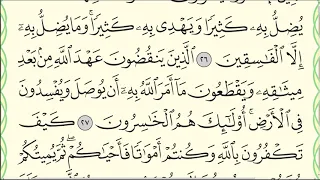 يُضِلُّ بِهِۦ كَثِيرًا وَيَهْدِى بِهِۦ كَثِيرًا ۚ وَمَا يُضِلُّ بِهِۦٓ
إِلَّا ٱلْفَٰسِقِينَ ٢٦ ٱلَّذِينَ يَنقُضُونَ عَهْدَ ٱللَّهِ مِنۢ بَعْدِ
مِيثَٰقِهِۦ وَيَقْطَعُونَ مَآ أَمَرَ ٱللَّهُ بِهِۦٓ أَن يُوصَلَ وَيُفْسِدُونَ
فِى ٱلْأَرْضِ ۚ أُو۟لَٰٓئِكَ هُمُ ٱلْخَٰسِرُونَ ٢٧ كَيْفَ
تَكْفُرُونَ بِٱللَّهِ وَكُنتُمْ أَمْوَٰتًا فَأَحْيَٰكُمْ ۖ ثُمَّ يُمِيتُكُمْ